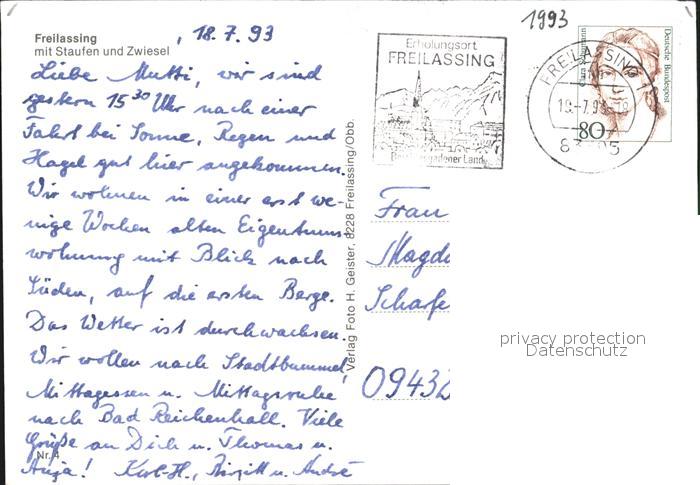 Freilassing
mit Staufen und Zwiesel
18.7.93
Liebe Mutti, wir sind
gestern 15 30 Uhr nach einer
Fahrt bei Sonne, Regen und
Hagel gut hier angekommen.
Wir wohnen in einer erst we-
nige Wochen alten Eigentums-
wohnung mit Blick nach
Süden, auf die ersten Berge.
Das Wetter ist durchwachsen.
Wir wollen nach Stadtbummel,
Mittagessen u. Mittagsruhe
nach Bad Reichenhall. Viele
Grüße an Dich u. Thomas u.
Anja! Karl-H., Birgitt u. André
Nr. 4
Verlag Foto H. Geister, 8228 Freilassing/Obb.
1993
Erholungsort
FREILASSING
Berchtesgadener Land
FREILASSING 1
80
Deutsche Bundespost
Frau
Magd
Scharfe
09432
privacy protection
Datenschutz